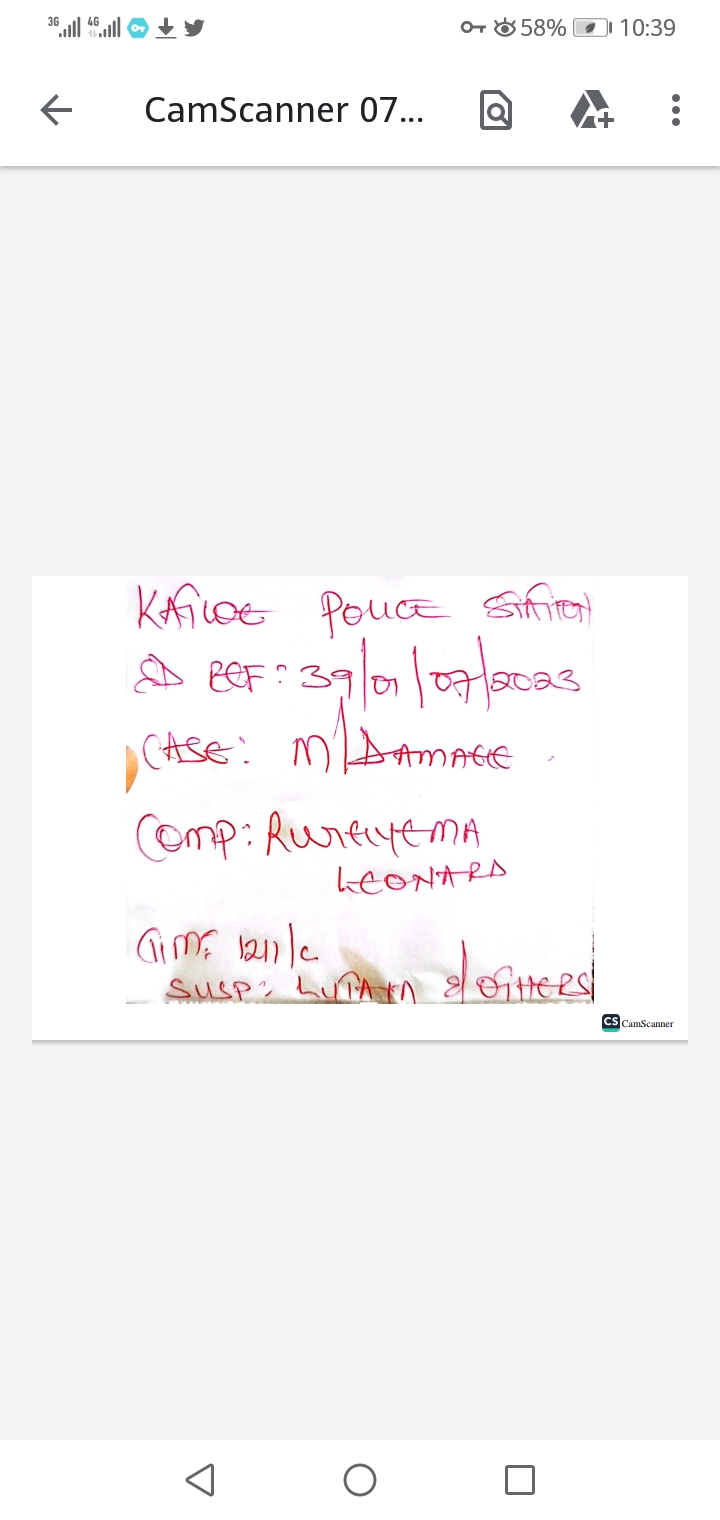 3G 4G 58% 10:39
CamScanner 07...
POLICE STATION
SD REF: 39/01/07/2023
CASE: M/DAMAGE
COMP:
LEONARD
Time 1211/c
SUSP: LUTAYA & OTHERS
CS CamScanner